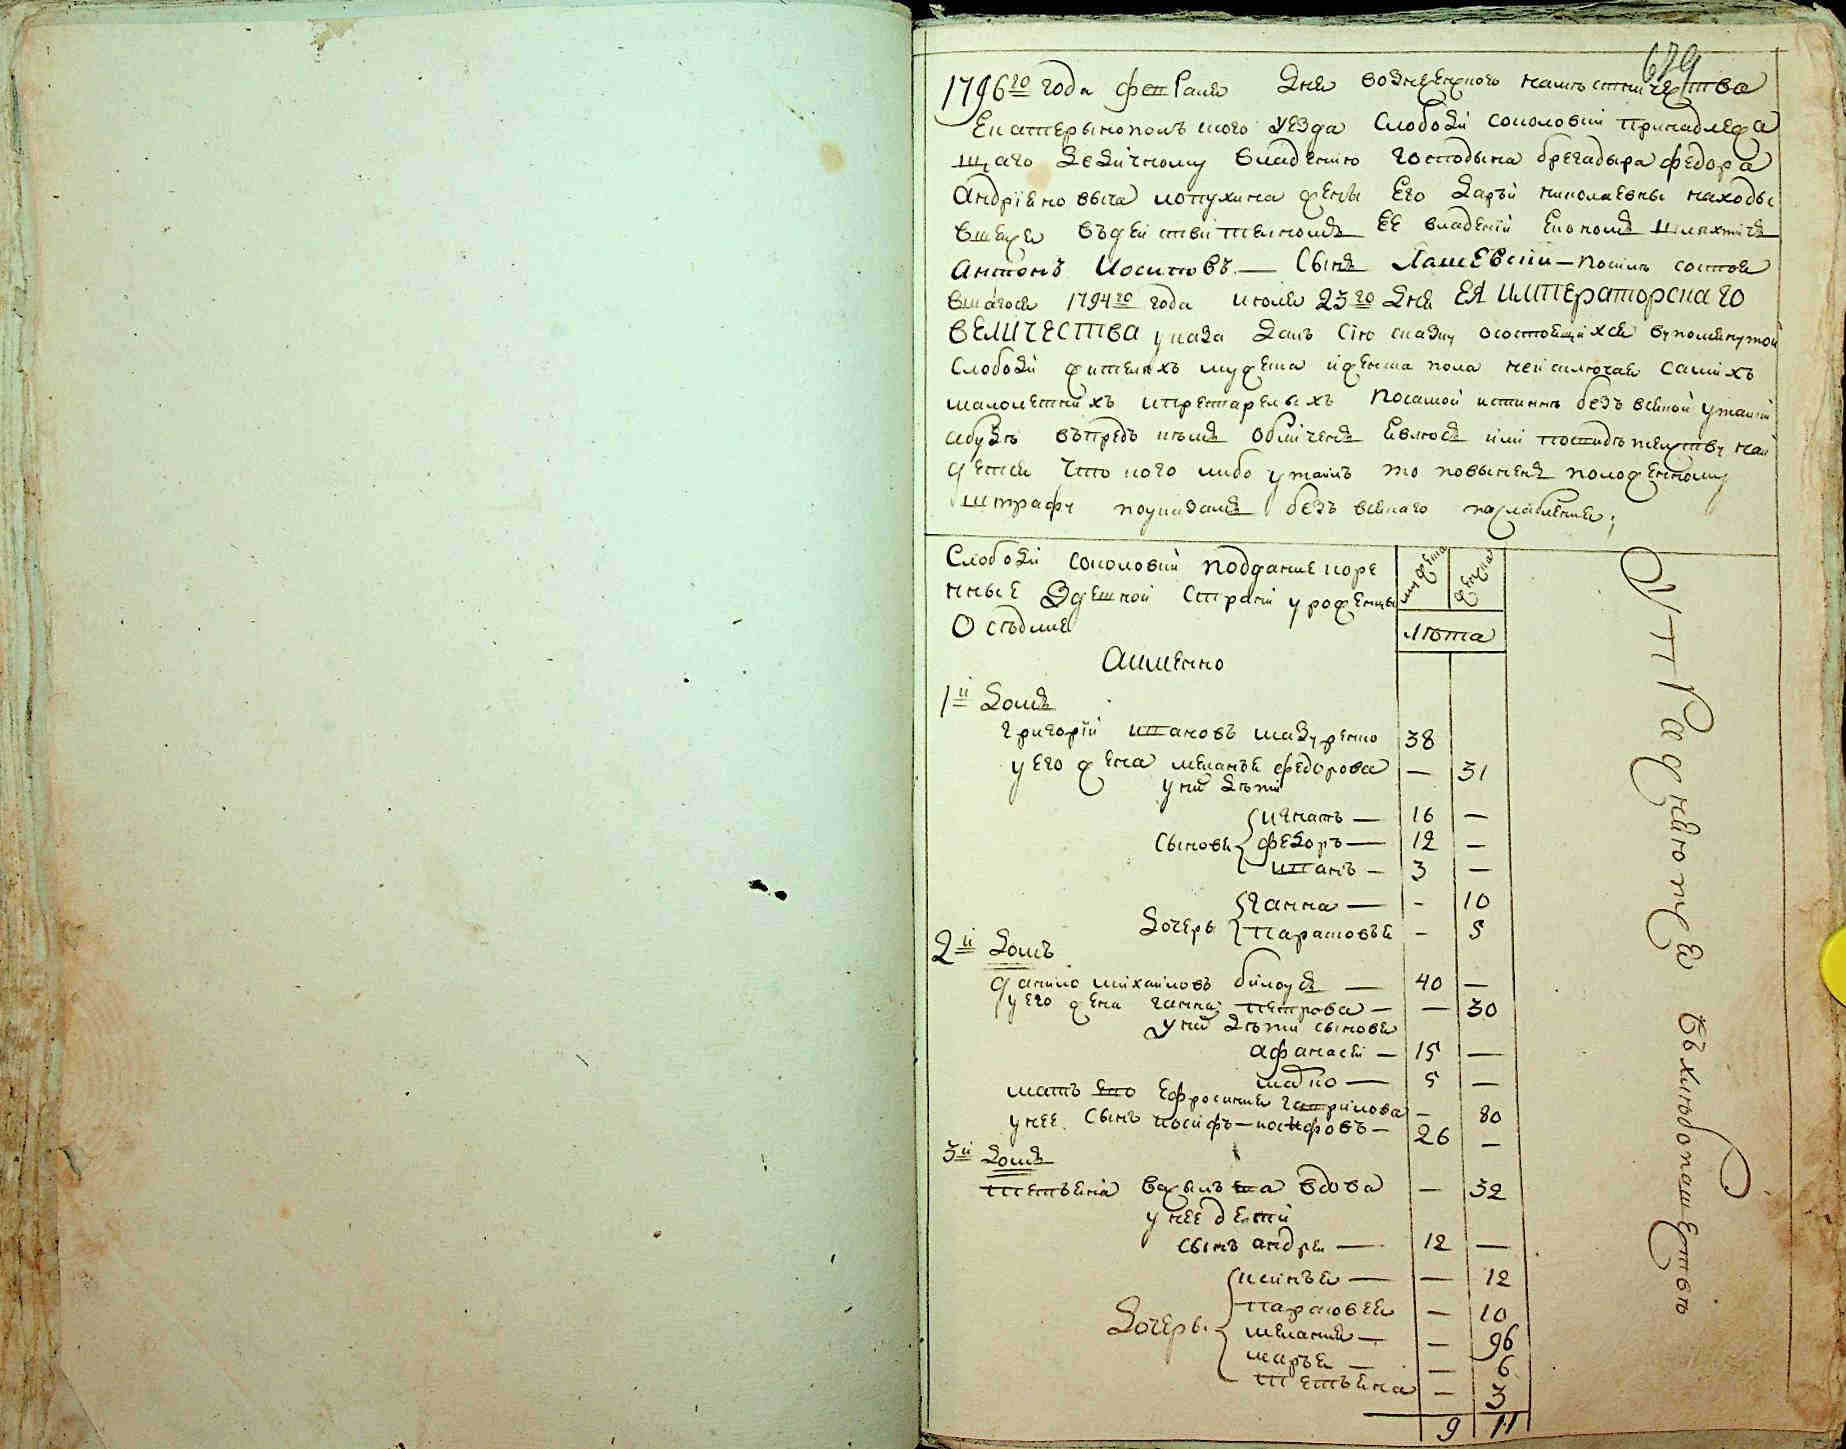 679
1796го года февраля дня вознесенского наместничества
Екатеринополъского уезда Слободи соколовки принадлежа
щаго дедичному владению господина брегадыра федора
андриевовыча лопухина жены Его даръи николаевны находы
вшейся въдействителном ее владении Економ шляхтич
антонъ иосиповъ сынъ Лашевский посилъ состоя
вшагося 1794го года июля 23го дня ЕЯ ИМПЕРАТОРСКАГО
ВЕЛИЧЕСТВА указа далъ сию сказку осостоящихся вупомянутой
Слободи жителяхъ мужеска иженска пола неисключая самихъ
малолетнихъ ипрестарелыхъ посамой истинне безъ всякой утайки
абуде въпредь кемъ обличенъ явлюся или посвидетелству най
детси что кого либо утаилъ то повыненъ положенному
штрафу поуказамъ безъ всякаго послабления;
Слободи соколовки поддание коре
нные здешной страни уроженцы
Оседлие
мужеска
женска
лета
Аименно
1й домъ
григорий ивановъ мазуренко 38
уего жена меланъя федорова — 31
уних дети
Сыновя
игнатъ — 16 —
федоръ — 12 —
иванъ — 3 —
дочеръ
ганна — - 10
парасовъя - 5
2й домъ
данило михаиловъ билоус — 40 —
уего жена ганна петрова — — 30
уних дети сыновя
афанасей — 15 —
марко — 5 —
мать его ефросиния гаврилова — 80
унее сынъ иосифъ — иосифовъ — 26 —
3й домъ
татъяна василева вдова — 32
унее детей
сынъ андрей — 12 —
дочеръ
ксинъя — — 12
парасовея — 10
мелания — — 9
марья — — 6
татъяна — 3
9 11
Упражняются въхлебопашествъ